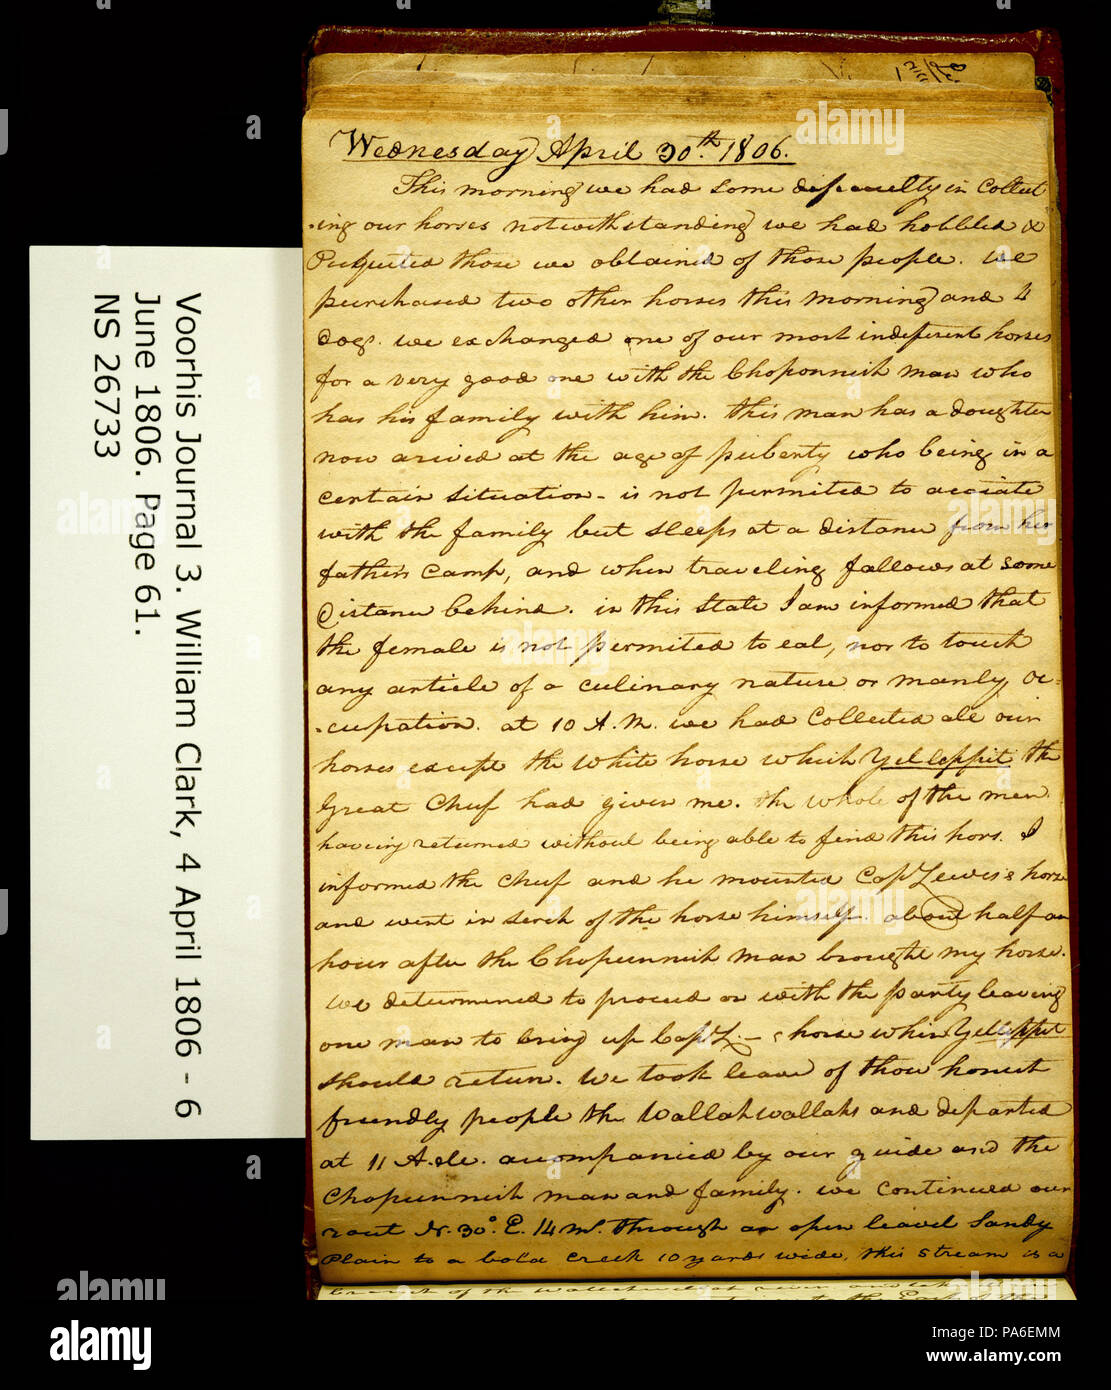 Wednesday April 30th. 1806.
This morning we had some dificuelty in Collect
-ing our horses notwithstanding we had hobbled &
Picqueted those we obtained of those people. we
purchased two other horses this morning and 4
dogs. we exchanged one of our most indeferent horses
for a very good one with the Choponnish man who
has his family with him. this man has a doughter
now arived at the age of puberty who being in a
certain situation - is not permited to acciate
with the family but sleeps at a distance from her
father's Camp, and when traveling follows at some
distance behind. in this state I am informed that
the female is not permited to eat, nor to touch
any article of a culinary nature or manly oc-
-cupation. at 10 A.M. we had Collected all our
horses except the White horse which Yelleppit the
Great Chief had given me. the whole of the men
haveing returned without being able to find this hors. I
informed the chief and he mounted Capt Lewis's horse
and went in serch of the horse himself. about half an
hour after the Chopunnish man brought my horse.
we determined to proceed on with the party leaving
one man to bring up Capt L. -s horse when Yelleppit
should return. We took leave of those honest
friendly people the Wallahwallahs and departed
at 11 A.M. accompanied by our guide and the
Chopunnish man and family. we continued our
rout N. 30°. E. 14 ms. through an open leavel Sandy
Plain to a bold Creek 10 yards wide, this stream is a
Voorhis Journal 3. William Clark, 4 April 1806 - 6
June 1806. Page 61.
NS 26733
alamy
PA6EMM
www.alamy.com